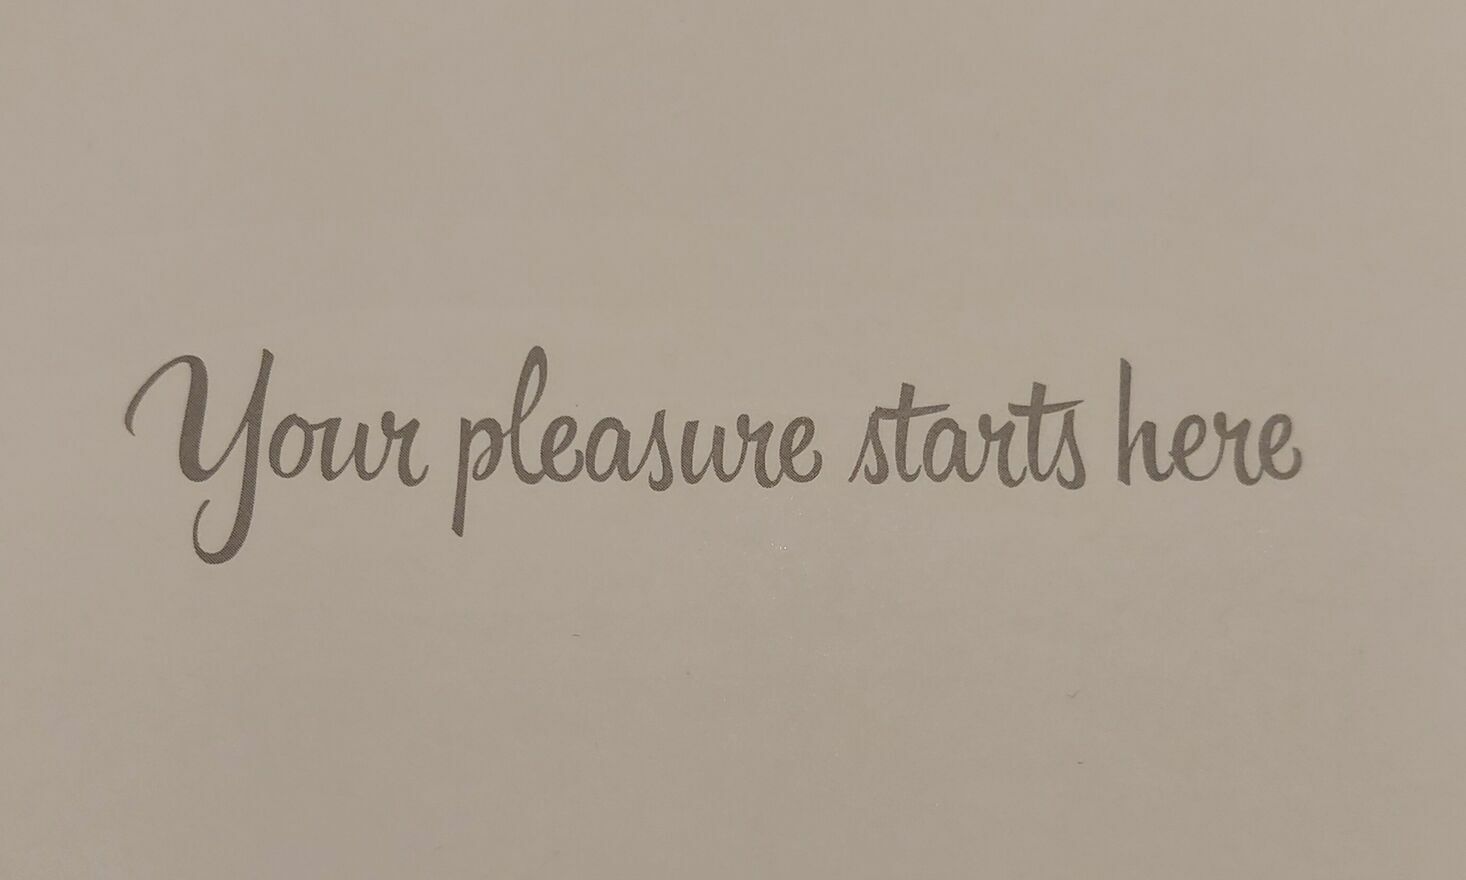 Your pleasure starts here